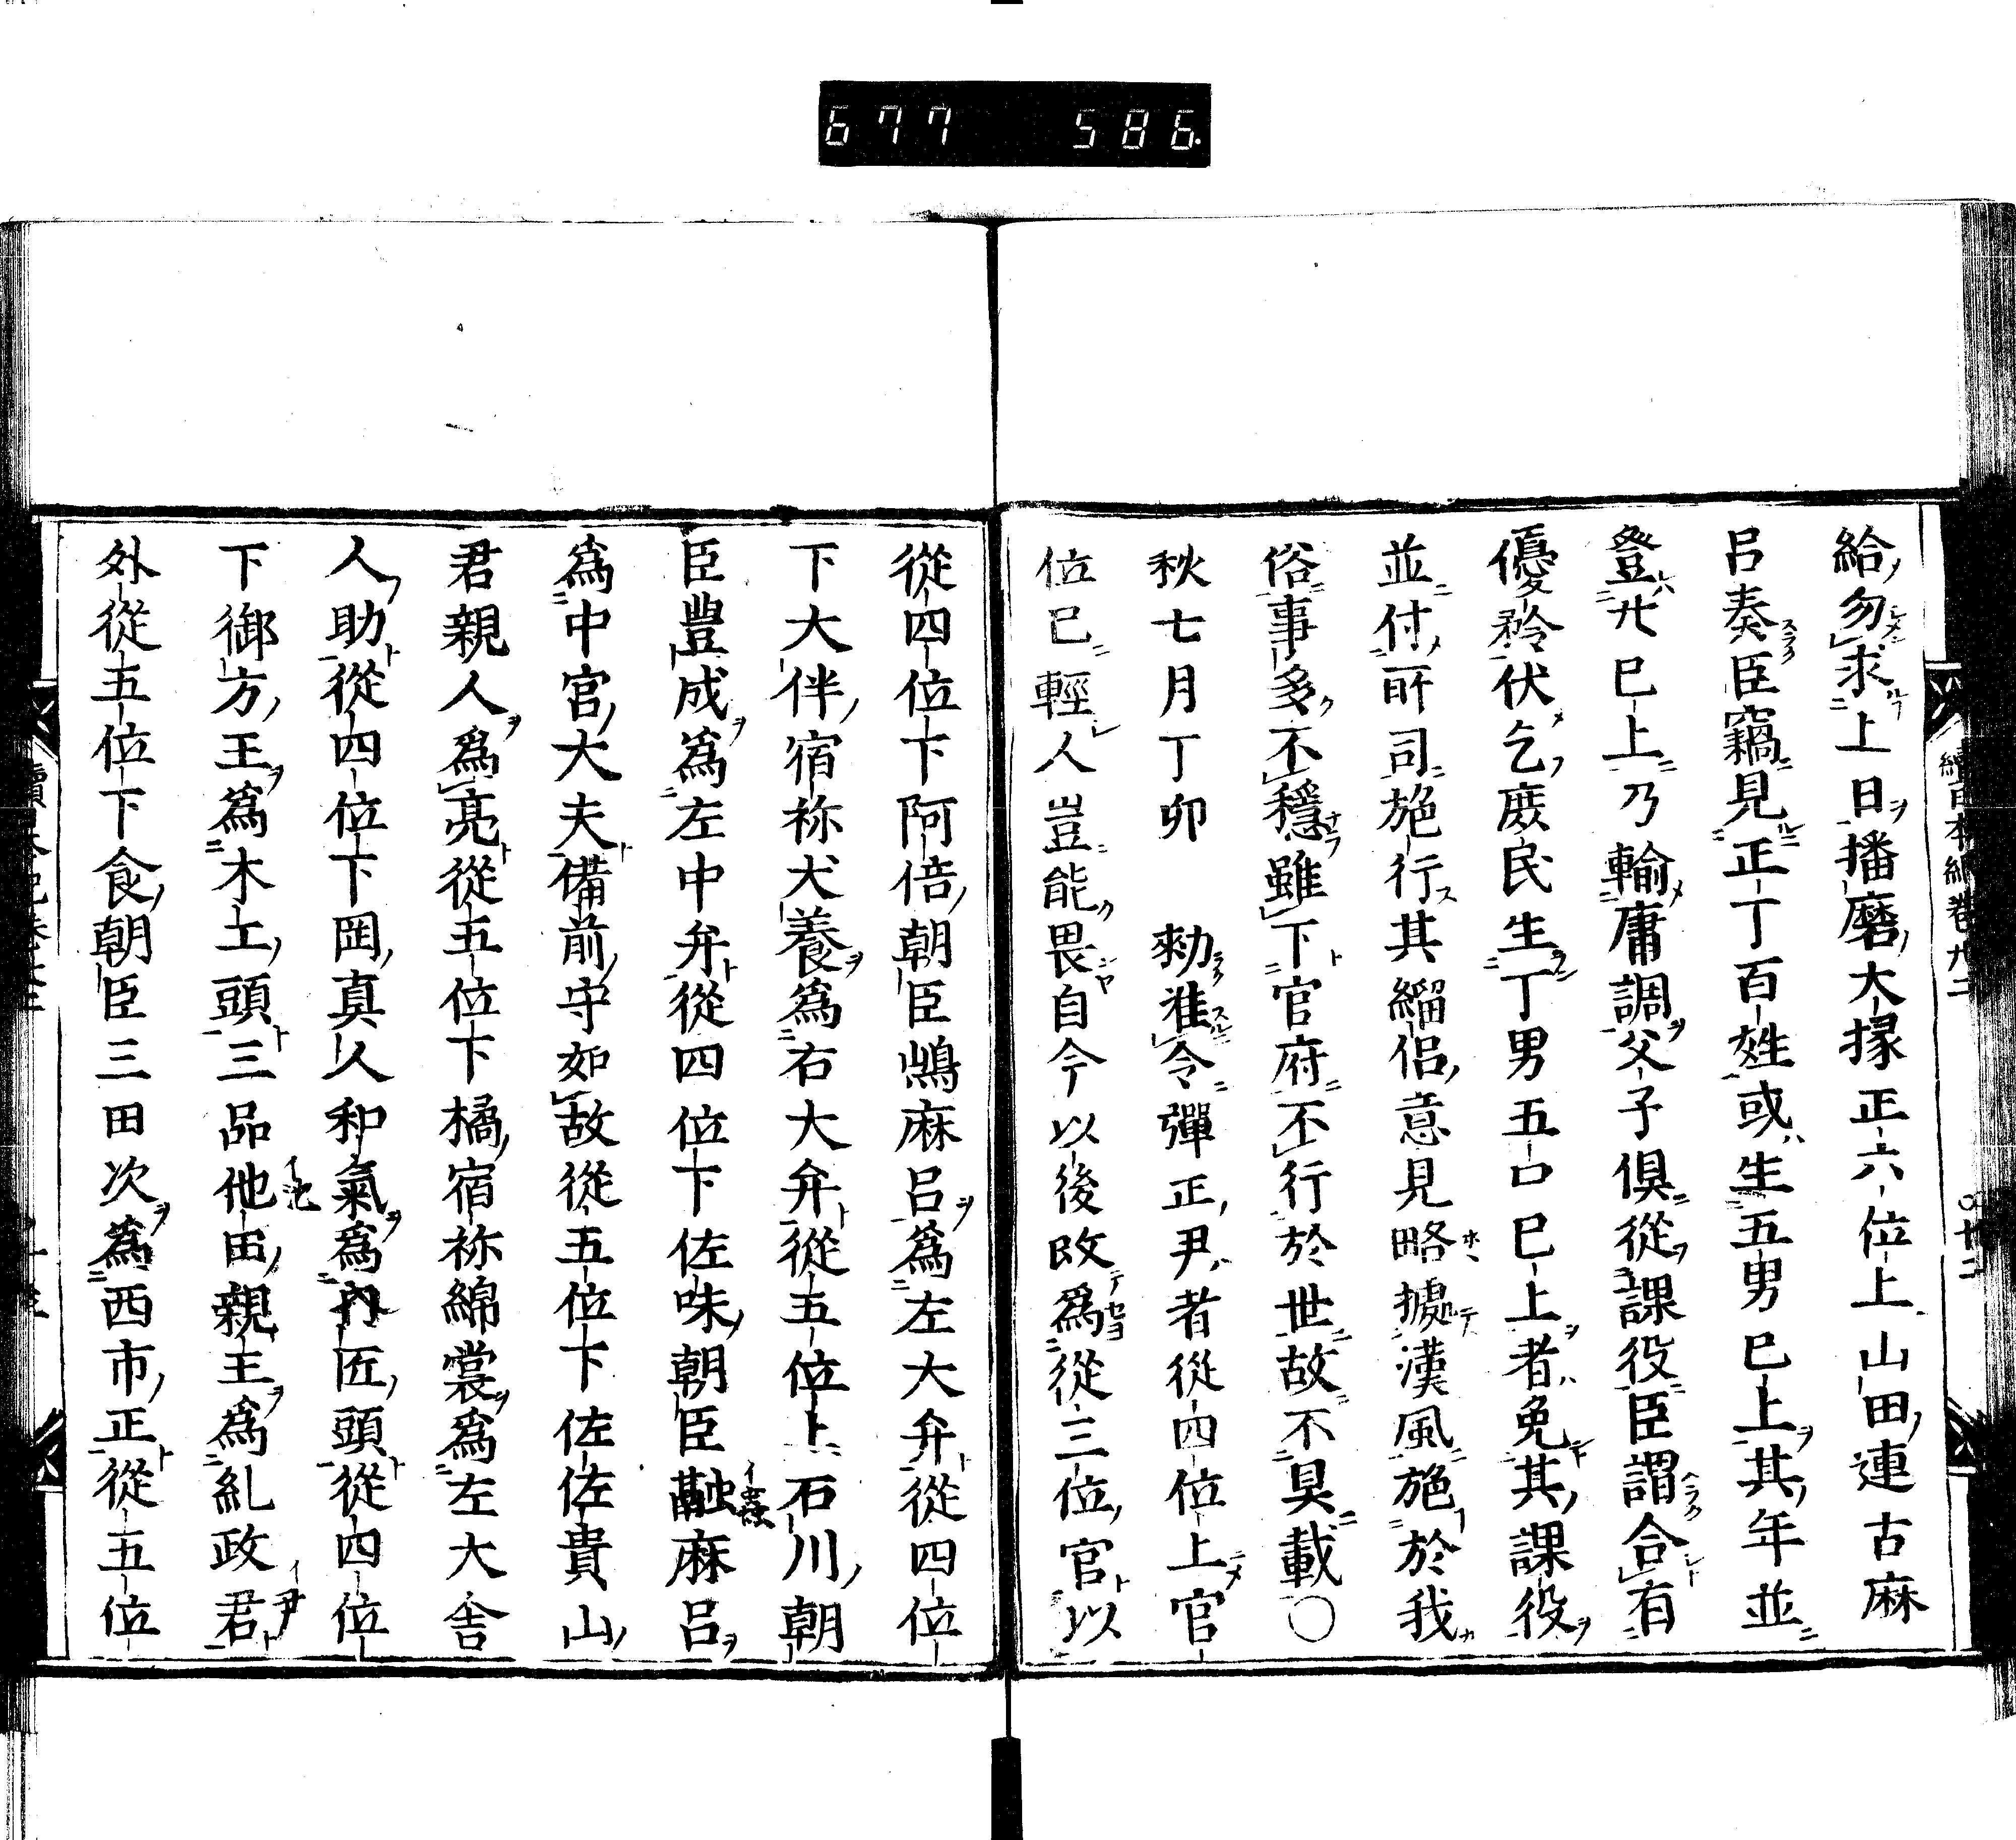 677 586
給勿求上日播磨大掾正六位上山田連古麻
呂奏臣竊見正丁百姓或生五男已上其年並
登廿已上乃輸庸調父子俱從課役臣謂合有
優矜伏乞庶民生丁男五口已上者免其課役
並付所司施行其緇侶意見略據漢風施於我
俗事多不穩雖下官府不行於世故不具載〇
秋七月丁卯 勑准令彈正尹者從四位上官
位已輕人豈能畏自今以後改爲從三位官以
從四位下阿倍朝臣嶋麻呂爲左大弁從四位
下大伴宿祢犬養爲右大弁從五位上石川朝
臣豐成爲左中弁從四位下佐味朝臣䖝麻呂
爲中宮大夫備前守如故從五位下佐佐貴山
君親人爲亮從五位下橘宿祢綿裳爲左大舍
人助從四位下岡真人和氣爲內匠頭從四位
下御方王爲木工頭三品他田親王爲糺政君
外從五位下食朝臣三田次爲西市正從五位